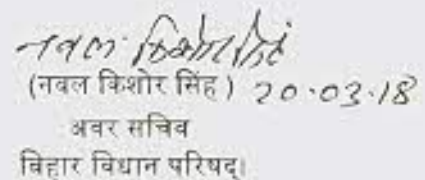 नवल किशोर सिंह
(नवल किशोर सिंह) 20.03.18
अवर सचिव
बिहार विधान परिषद्।